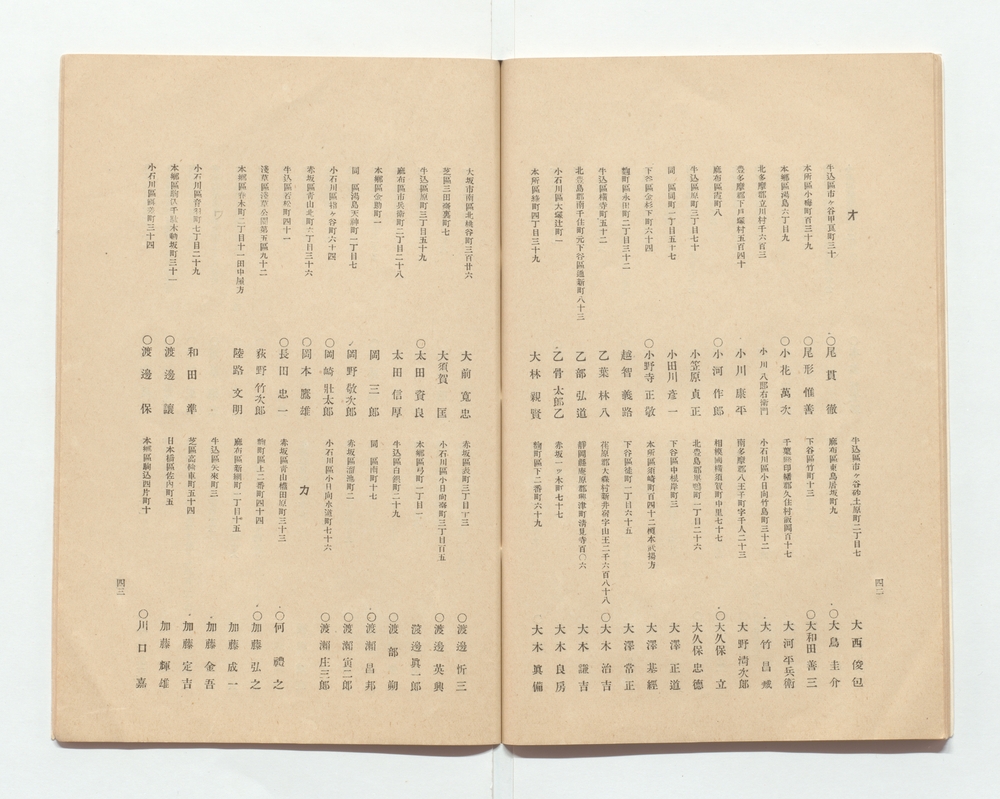 オ
牛込區市ヶ谷甲良町三十
○尾貫徹
本所區小梅町百三十九
○尾形惟善
本郷區湯島六丁目九
○小花萬次
北多摩郡立川村千六百三
小川八郎右衛門
豊多摩郡下戸塚村五百四十
小川康平
麻布區霞町八
○小河作郎
牛込區原町三丁目七十
小笠原貞正
同區岡町一丁目五十七
小田川彦一
下谷區金杉下町六十四
○小野寺正敬
麹町區永田町二丁目三十二
越智義路
牛込區横寺町五十二
乙葉林八
北豊島郡南千住町元下谷區通新町八十三
乙部弘道
小石川區大塚辻町一
乙骨太郎乙
本所區緑町四丁目三十九
大林親賢
牛込區市ヶ谷砂土原町二丁目七
大西俊包
麻布區東鳥居坂町九
○大鳥圭介
下谷區竹町十三
○大和田善三
千葉縣印旛郡久住村飯岡百十七
大河平兵衛
小石川區小日向竹島町三十二
大竹昌
南多摩郡八王子町字千人二十三
大野清次郎
相模國横須賀町中里七十七
○大久保立
北豊島郡巣鴨町一丁目二十六
大久保忠德
下谷區中根岸町三
大澤正道
本所區須崎町百四十二榎本武揚方
大澤基經
下谷區徒町一丁目六十五
大澤常正
荏原郡大森村新井宿字山王二千六百八十八
○大木治吉
靜岡縣庵原郡興津町清見寺百〇六
大木謙吉
赤坂一ッ木町七十七
大木良房
麹町區下二番町六十九
大木眞備
四二
大坂市南區北桃谷町三百廿六
大前寛忠
芝區三田臺裏町七
大須賀匡
牛込區原町三丁目五十九
○太田資良
麻布區市兵衛町二丁目二十八
太田信厚
本郷區金助町一
岡三郎
同區湯島天神町一丁目七
岡野敬次郎
小石川區指ヶ谷町六十四
○岡崎壯太郎
赤坂區青山北町六丁目三十六
○岡本鷹雄
牛込區若松町四十一
○長田忠一
淺草區淺草公園第五區九十二
荻野竹次郎
本郷區春木町二丁目十一田中屋方
陸路文明
ワ
小石川區音羽町七丁目二十九
和田準
本郷區駒込千駄木林坂町三十一
○渡邊讓
小石川區町三十四
○渡邊保
赤坂區表町三丁目十三
○渡邊忻三
小石川區小日向臺町三丁目百五
○渡邊英興
本郷區弓町一丁目一
渡邊眞一郎
牛込區白銀町二十九
○渡部朔
同區南町十七
○渡瀬昌邦
赤坂區溜池町二
○渡瀬寅二郎
小石川區小日向水道町七十六
○渡瀬庄三郎
カ
赤坂區青山權田原町三十三
○何禮之
麹町區上二番町四十四
○加藤弘之
麻布區新網町一丁目十五
加藤成一
牛込區矢來町三
加藤金吾
芝區高輪車町五十四
加藤定吉
日本橋區佐内町五
加藤輝雄
本郷區駒込西片町十
○川口嘉
四三